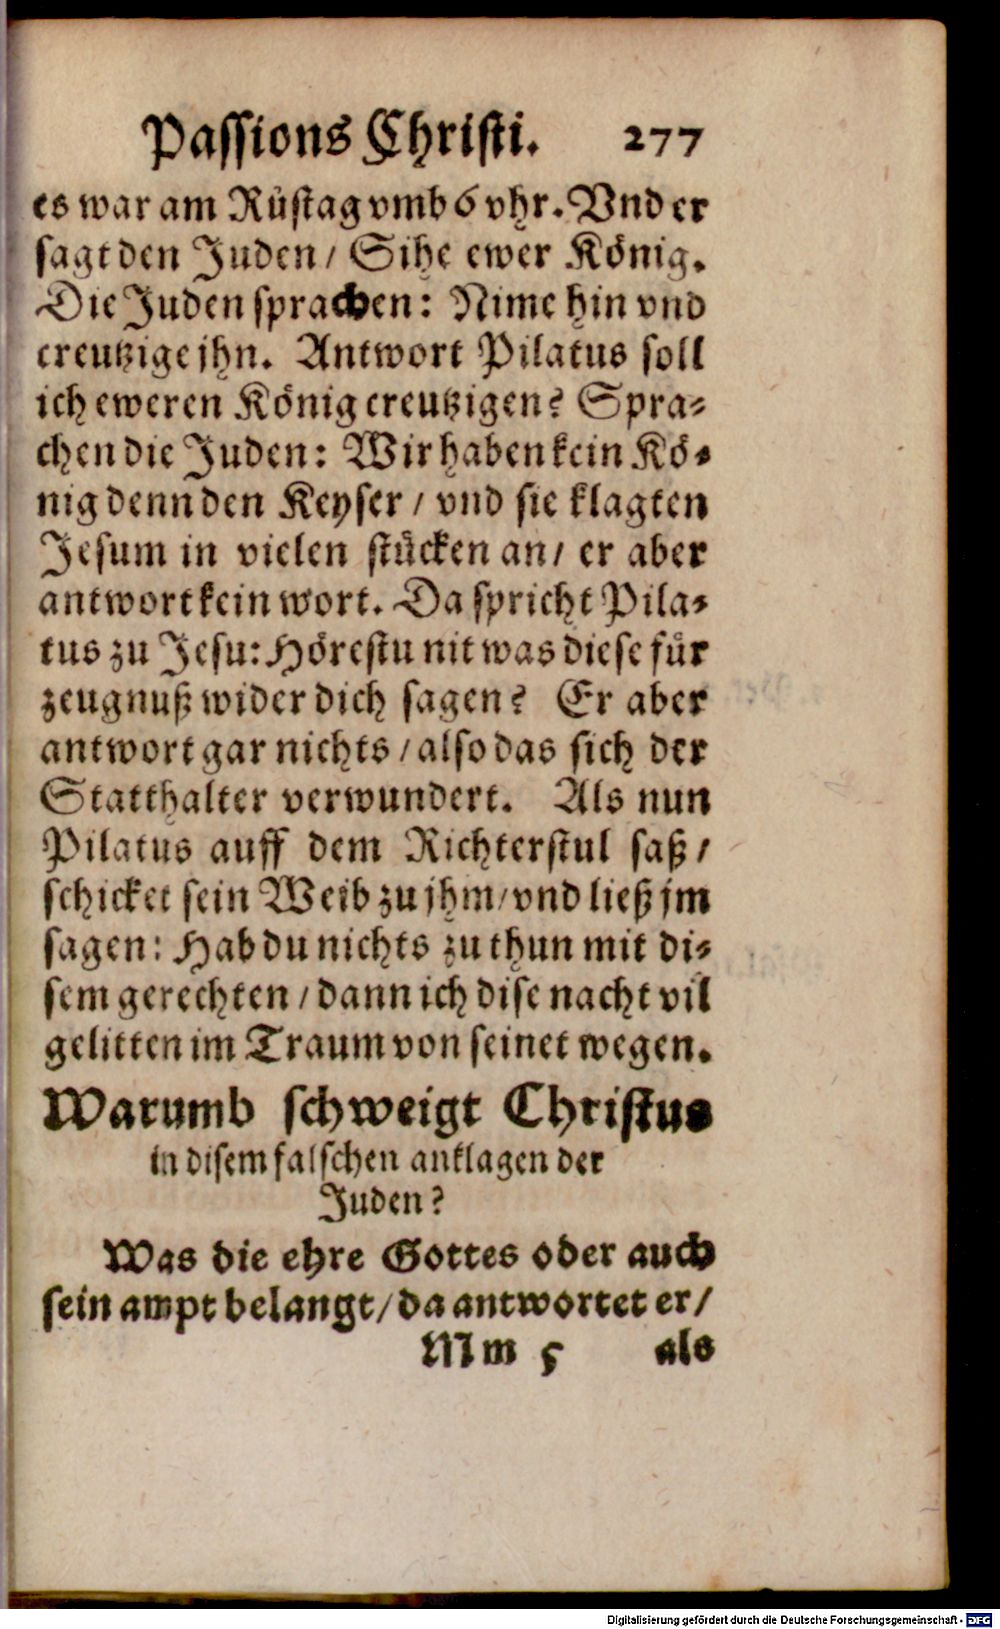 Passions Christi. 277
es war am Rüstag vmb 6 vhr. Vnd er
sagt den Juden/ Sihe ewer König.
Die Juden sprachen: Nime hin vnd
creutzige jhn. Antwort Pilatus soll
ich eweren König creutzigen? Spra-
chen die Juden: Wir haben kein Kö-
nig denn den Keyser/ vnd sie klagten
Jesum in vielen stücken an/ er aber
antwort kein wort. Da spricht Pila-
tus zu Jesu: Hörestu nit was diese für
zeugnuß wider dich sagen? Er aber
antwort gar nichts/ also das sich der
Statthalter verwundert. Als nun
Pilatus auff dem Richterstul saß/
schicket sein Weib zu jhm/ vnd ließ jm
sagen: Hab du nichts zu thun mit di-
sem gerechten/ dann ich dise nacht vil
gelitten im Traum von seinet wegen.
Warumb schweigt Christus
in disem falschen anklagen der
Juden?
Was die ehre Gottes oder auch
sein ampt belangt/ da antwortet er/
Mm 5 als
Digitalisierung gefördert durch die Deutsche Forschungsgemeinschaft - DFG